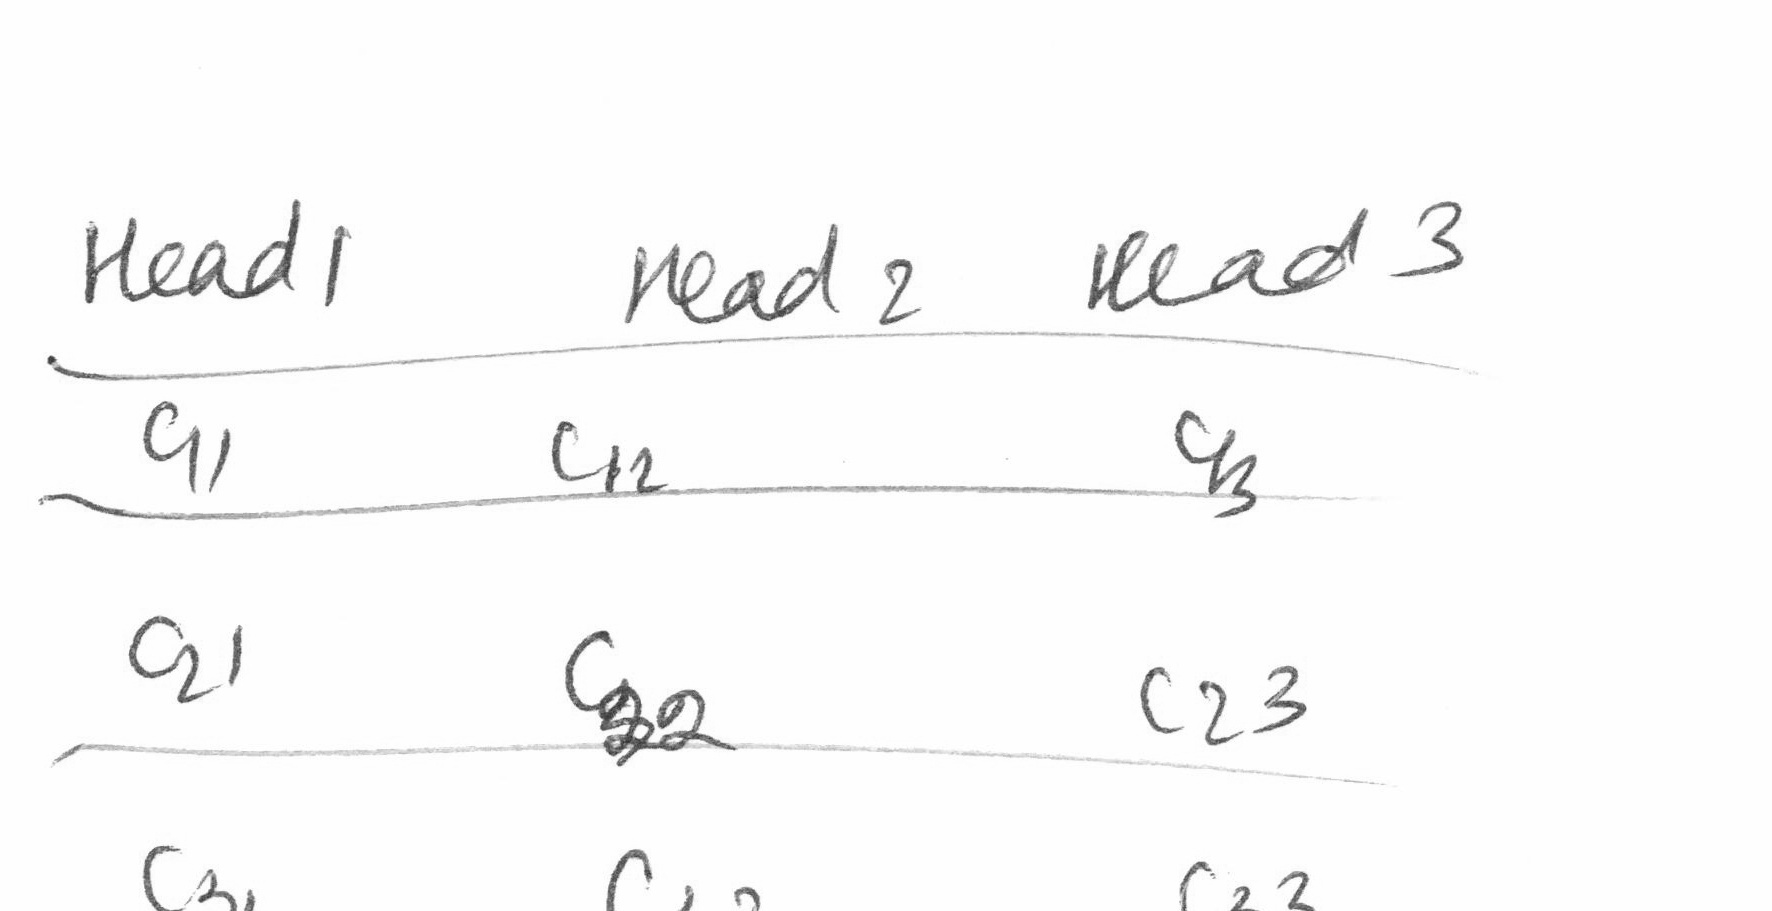 Head1 Head 2 Head 3
C11 C12 C13
C21 C22 C23